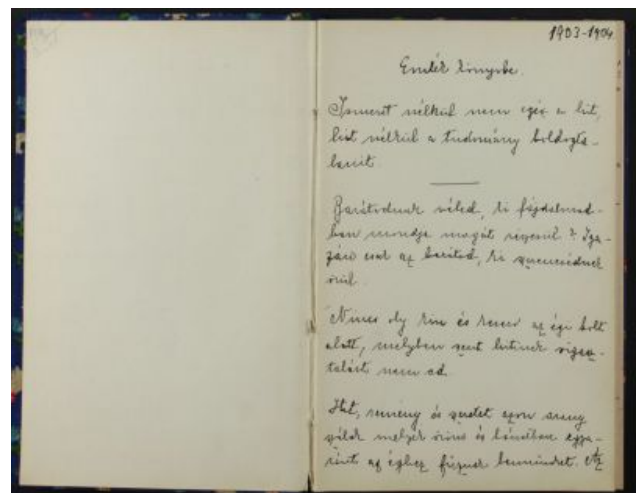 1903-1904
Emlék könyvbe.
Ismeret nélkül nem egész a hit,
hit nélkül a tudomány boldogta-
lanit.
Barátodnak véled, ki fájdalmad-
ban mondja magát részesül? Iga-
zán csak az barátod, ki szerencsédnek
örül.
Nincs oly kín és az égi bolt
alatt, melyben szent hitünk vigasz-
talást nem ad.
Hit, remény és szeretet azon arany
melyek öröm és bánatban egya-
ránt az éghez fűznek bennünket. Az